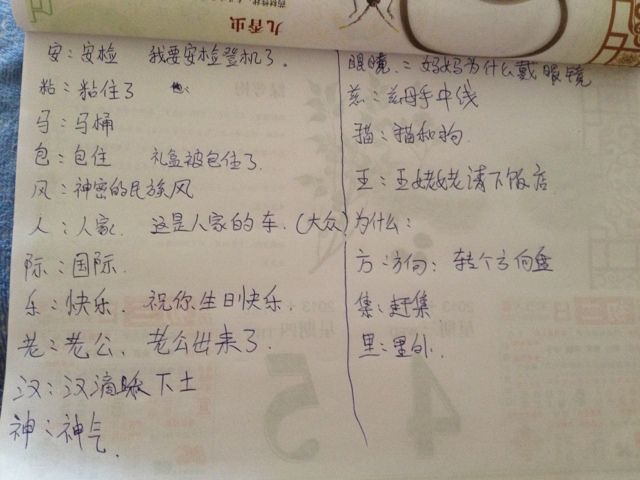 九香虫
安：安检 我要安检登机了.
粘：粘住了
马：马桶
包：包住 礼盒被包住了.
风：神密的民族风
人：人家. 这是人家的车.(大众)
际：国际.
乐：快乐. 祝你生日快乐.
老：老公、老公出来了.
汉：汉滴 下土
神：神气.
眼镜.：妈妈为什么戴眼镜
慈：慈母手中线
猫：猫和狗.
王：王姥姥请下饭店.
为什么：
方：方向：转个方向盘
集：赶集
里：里外.